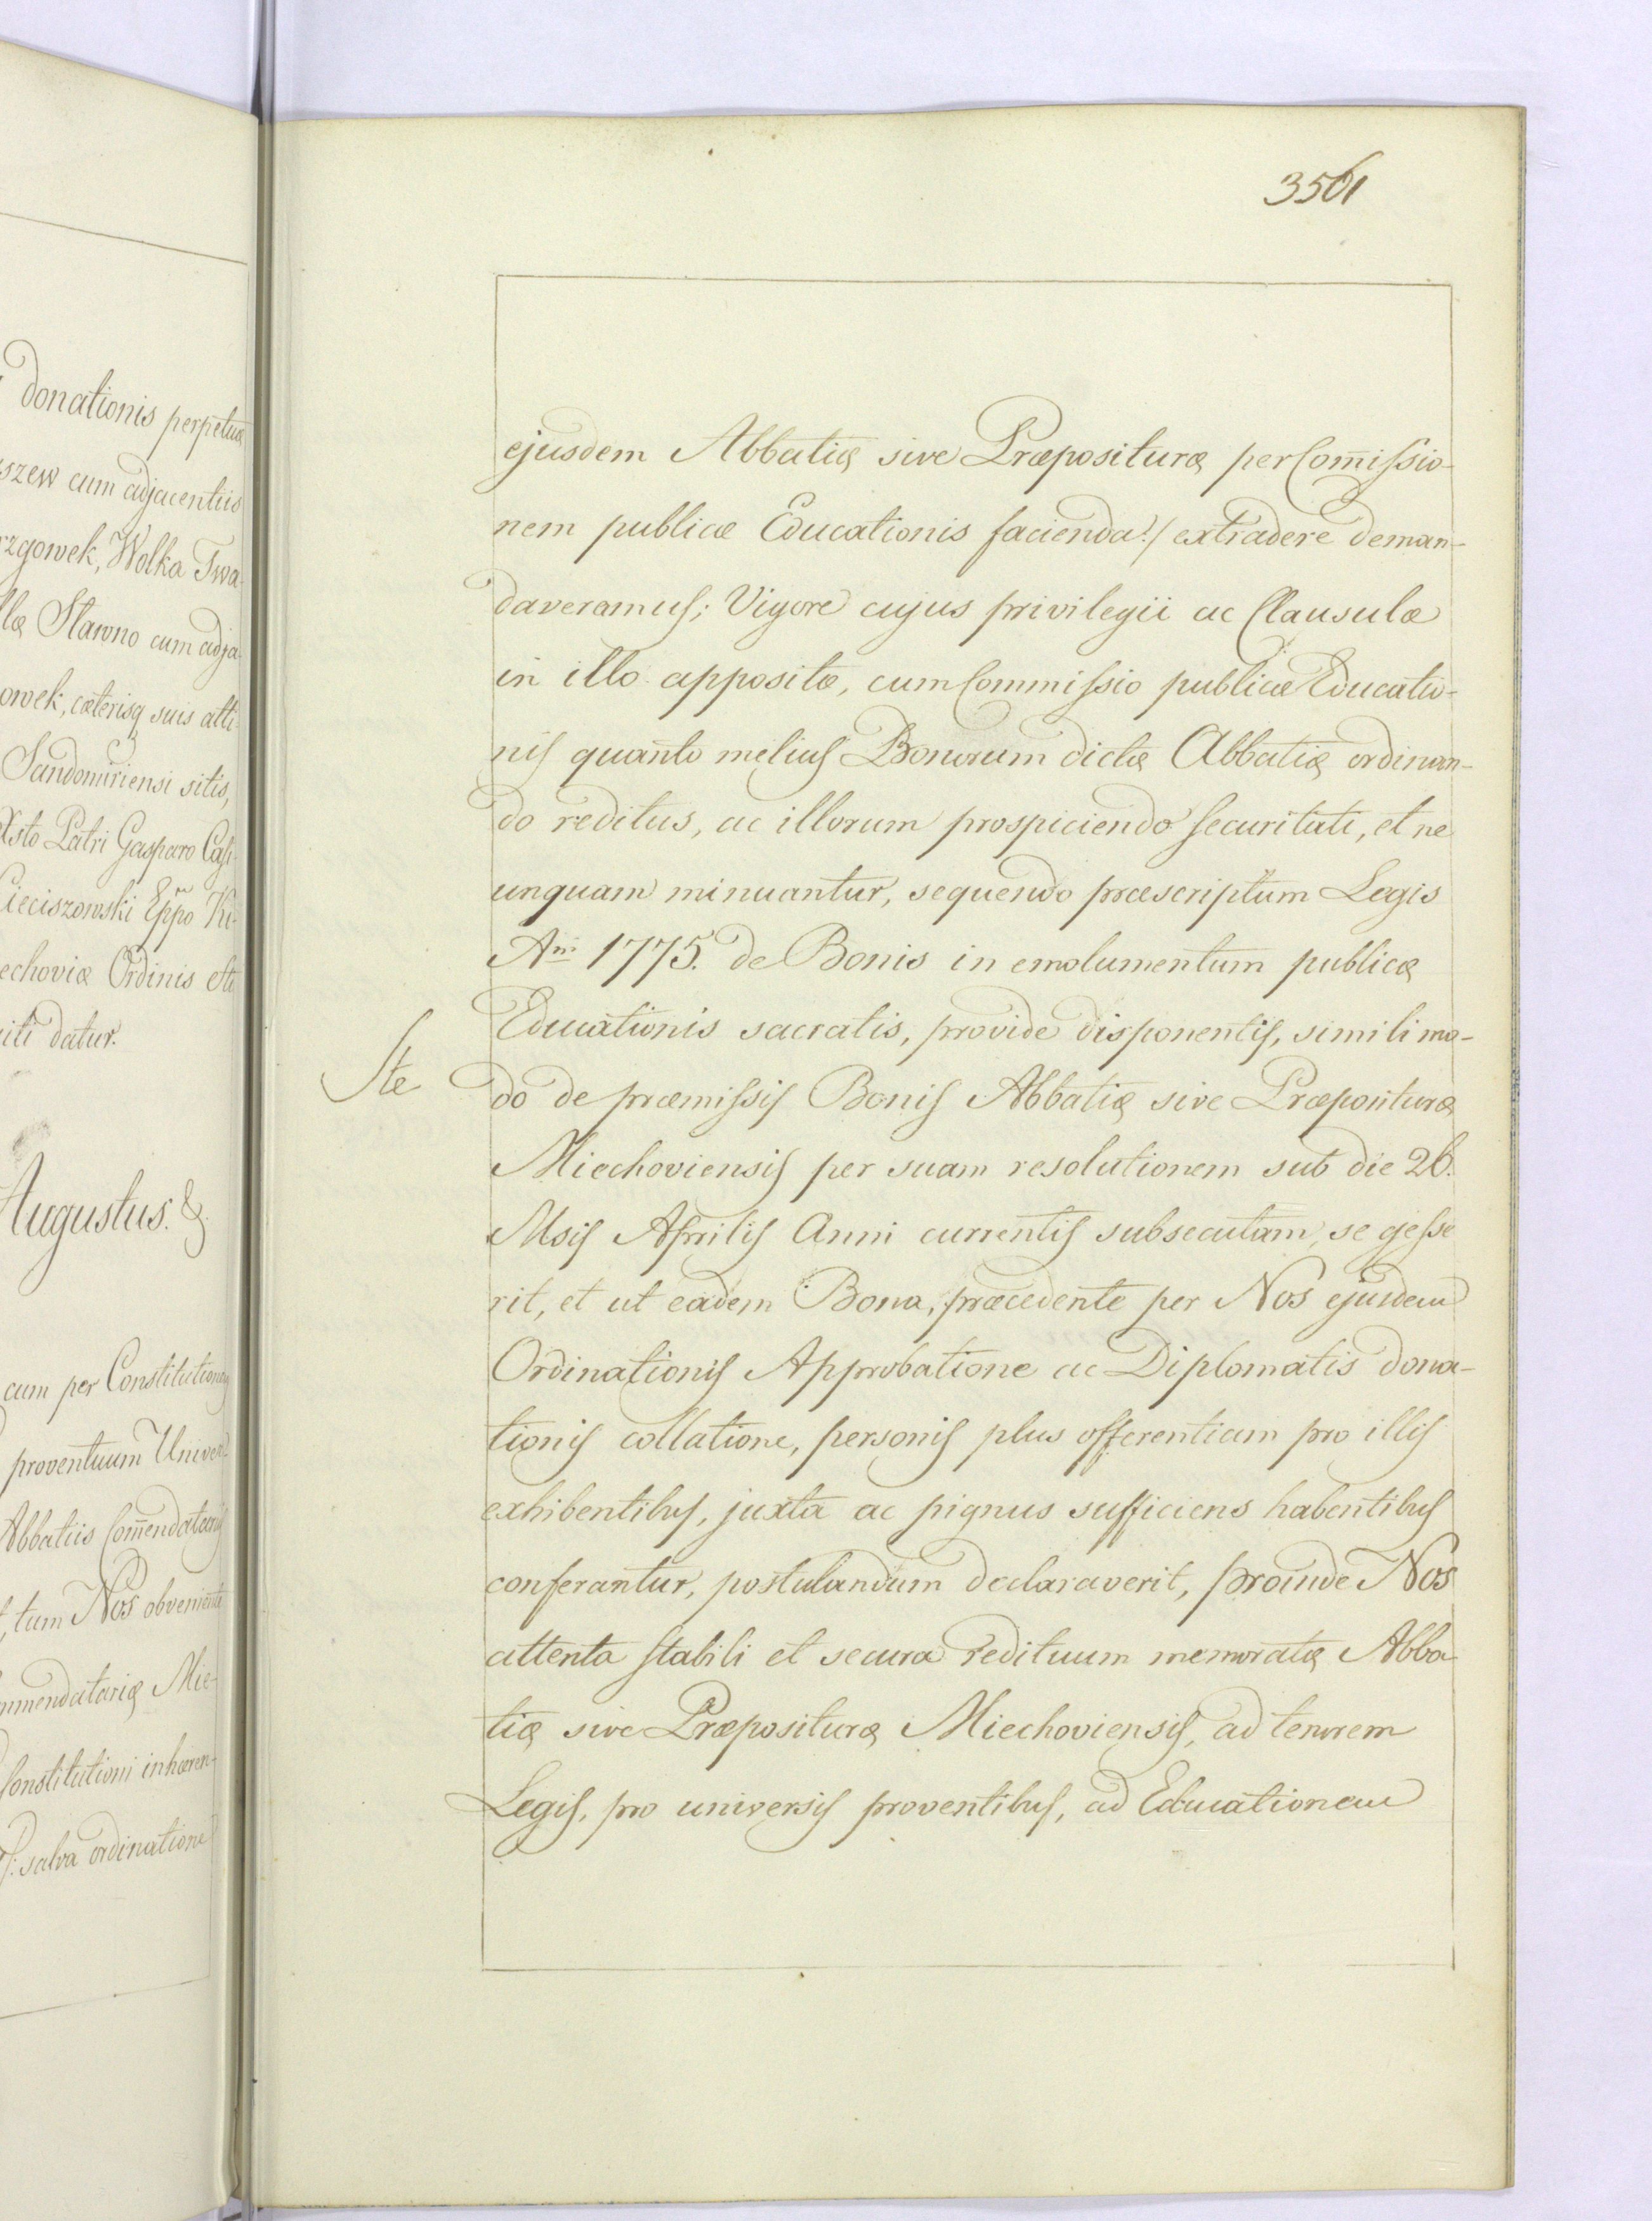 donationis perpetuæ
szew cum adjacentiis
rzgowek, Wolka Twa
læ Slawno cum adja
owek, cæterisq suis atti
Sandomiriensi sitis,
Xsto Patri Gasparo Casi
Cieciszowski Eppo Ki
echoviæ Ordinis
iti datur.
Augustus. &
cum per Constitutionem
proventuum Univer
Abbatiis Com̄endatariis
tum Nos obveniente
mmendatariæ Mie-
Constitutioni inhæren-
salva ordinatione
3561
ejusdem Abbatiæ sive Præposituræ per Com̄issio-
nem publicæ Educationis facienda:/ extradere deman-
daveramus; Vigore cujus privilegii ac Clausulæ
in illo appositæ, cum Commissio publicæ Educatio-
nis quanto melius Bonorum dictæ Abbatiæ ordinan-
do reditus, ac illorum prospiciendo securitati, et ne
unquam minuantur, sequendo præscriptum Legis
Ani 1775. de Bonis in emolumentum publicæ
Educationis sacratis, provide disponentis, simili mo-
Ste
do de præmissis Bonis Abbatiæ sive Præposituræ
Miechoviensis per suam resolutionem sub die 26.
Msis Aprilis Anni currentis subsecutam, se gesse
rit, et ut eadem Bona, præcedente per Nos ejusdem
Ordinationis Approbatione ac Diplomatis dona-
tionis collatione, personis plus offerentiam pro illis
exhibentibus, juxta ac pignus sufficiens habentibus
conferantur, postulandum declaraverit, proinde Nos
attenta stabili et secura redituum memoratæ Abba
tiæ sive Præposituræ Miechoviensis, ad tenorem
Legis, pro universis proventibus, ad Educationem